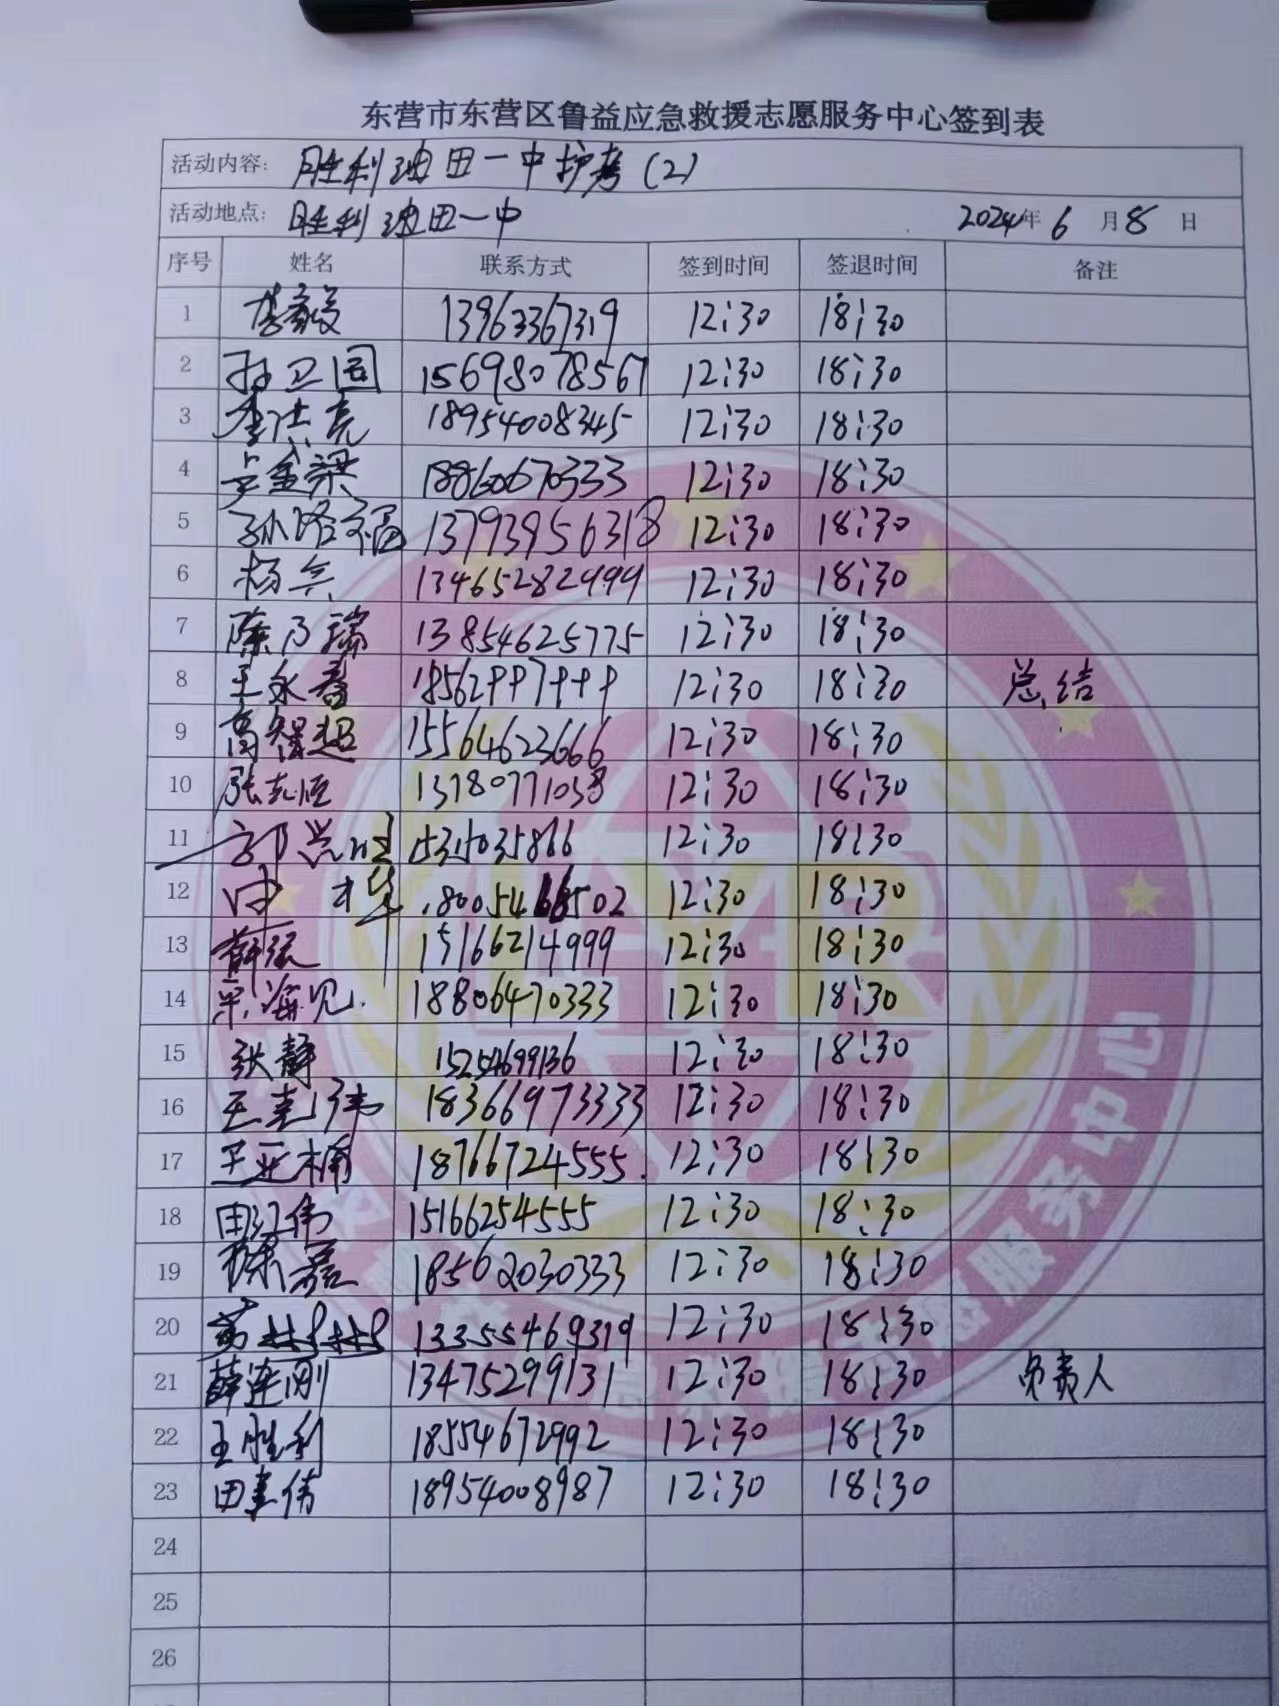 东营市东营区鲁益应急救援志愿服务中心签到表
活动内容: 胜利油田一中护考(2)
活动地点: 胜利油田一中 2024年6月8日
序号 姓名 联系方式 签到时间 签退时间 备注
1 李毅 13963367319 12:30 18:30
2 孙卫国 15698078567 12:30 18:30
3 李洪亮 18954008345 12:30 18:30
4 盛梁 18860670333 12:30 18:30
5 孙洛福 13793956318 12:30 18:30
6 杨兵 13465282999 12:30 18:30
7 陈乃瑞 13854625775 12:30 18:30
8 王永春 18562997999 12:30 18:30 总结
9 高智超 15564623666 12:30 18:30
10 张志恒 13780771038 12:30 18:30
11 郭兴旺 15315035866 12:30 18:30
12 申华 18005466502 12:30 18:30
13 薛强 15166214999 12:30 18:30
14 宋海见 18806470333 12:30 18:30
15 张静 15254699136 12:30 18:30
16 王春伟 18366973333 12:30 18:30
17 王亚楠 18766724555 12:30 18:30
18 田红伟 15166254555 12:30 18:30
19 徐磊 18562030333 12:30 18:30
20 林林 13355469319 12:30 18:30
21 薛连刚 13475299131 12:30 18:30 负责人
22 王胜利 18554672992 12:30 18:30
23 田建伟 18954008987 12:30 18:30
24
25
26
服务中心